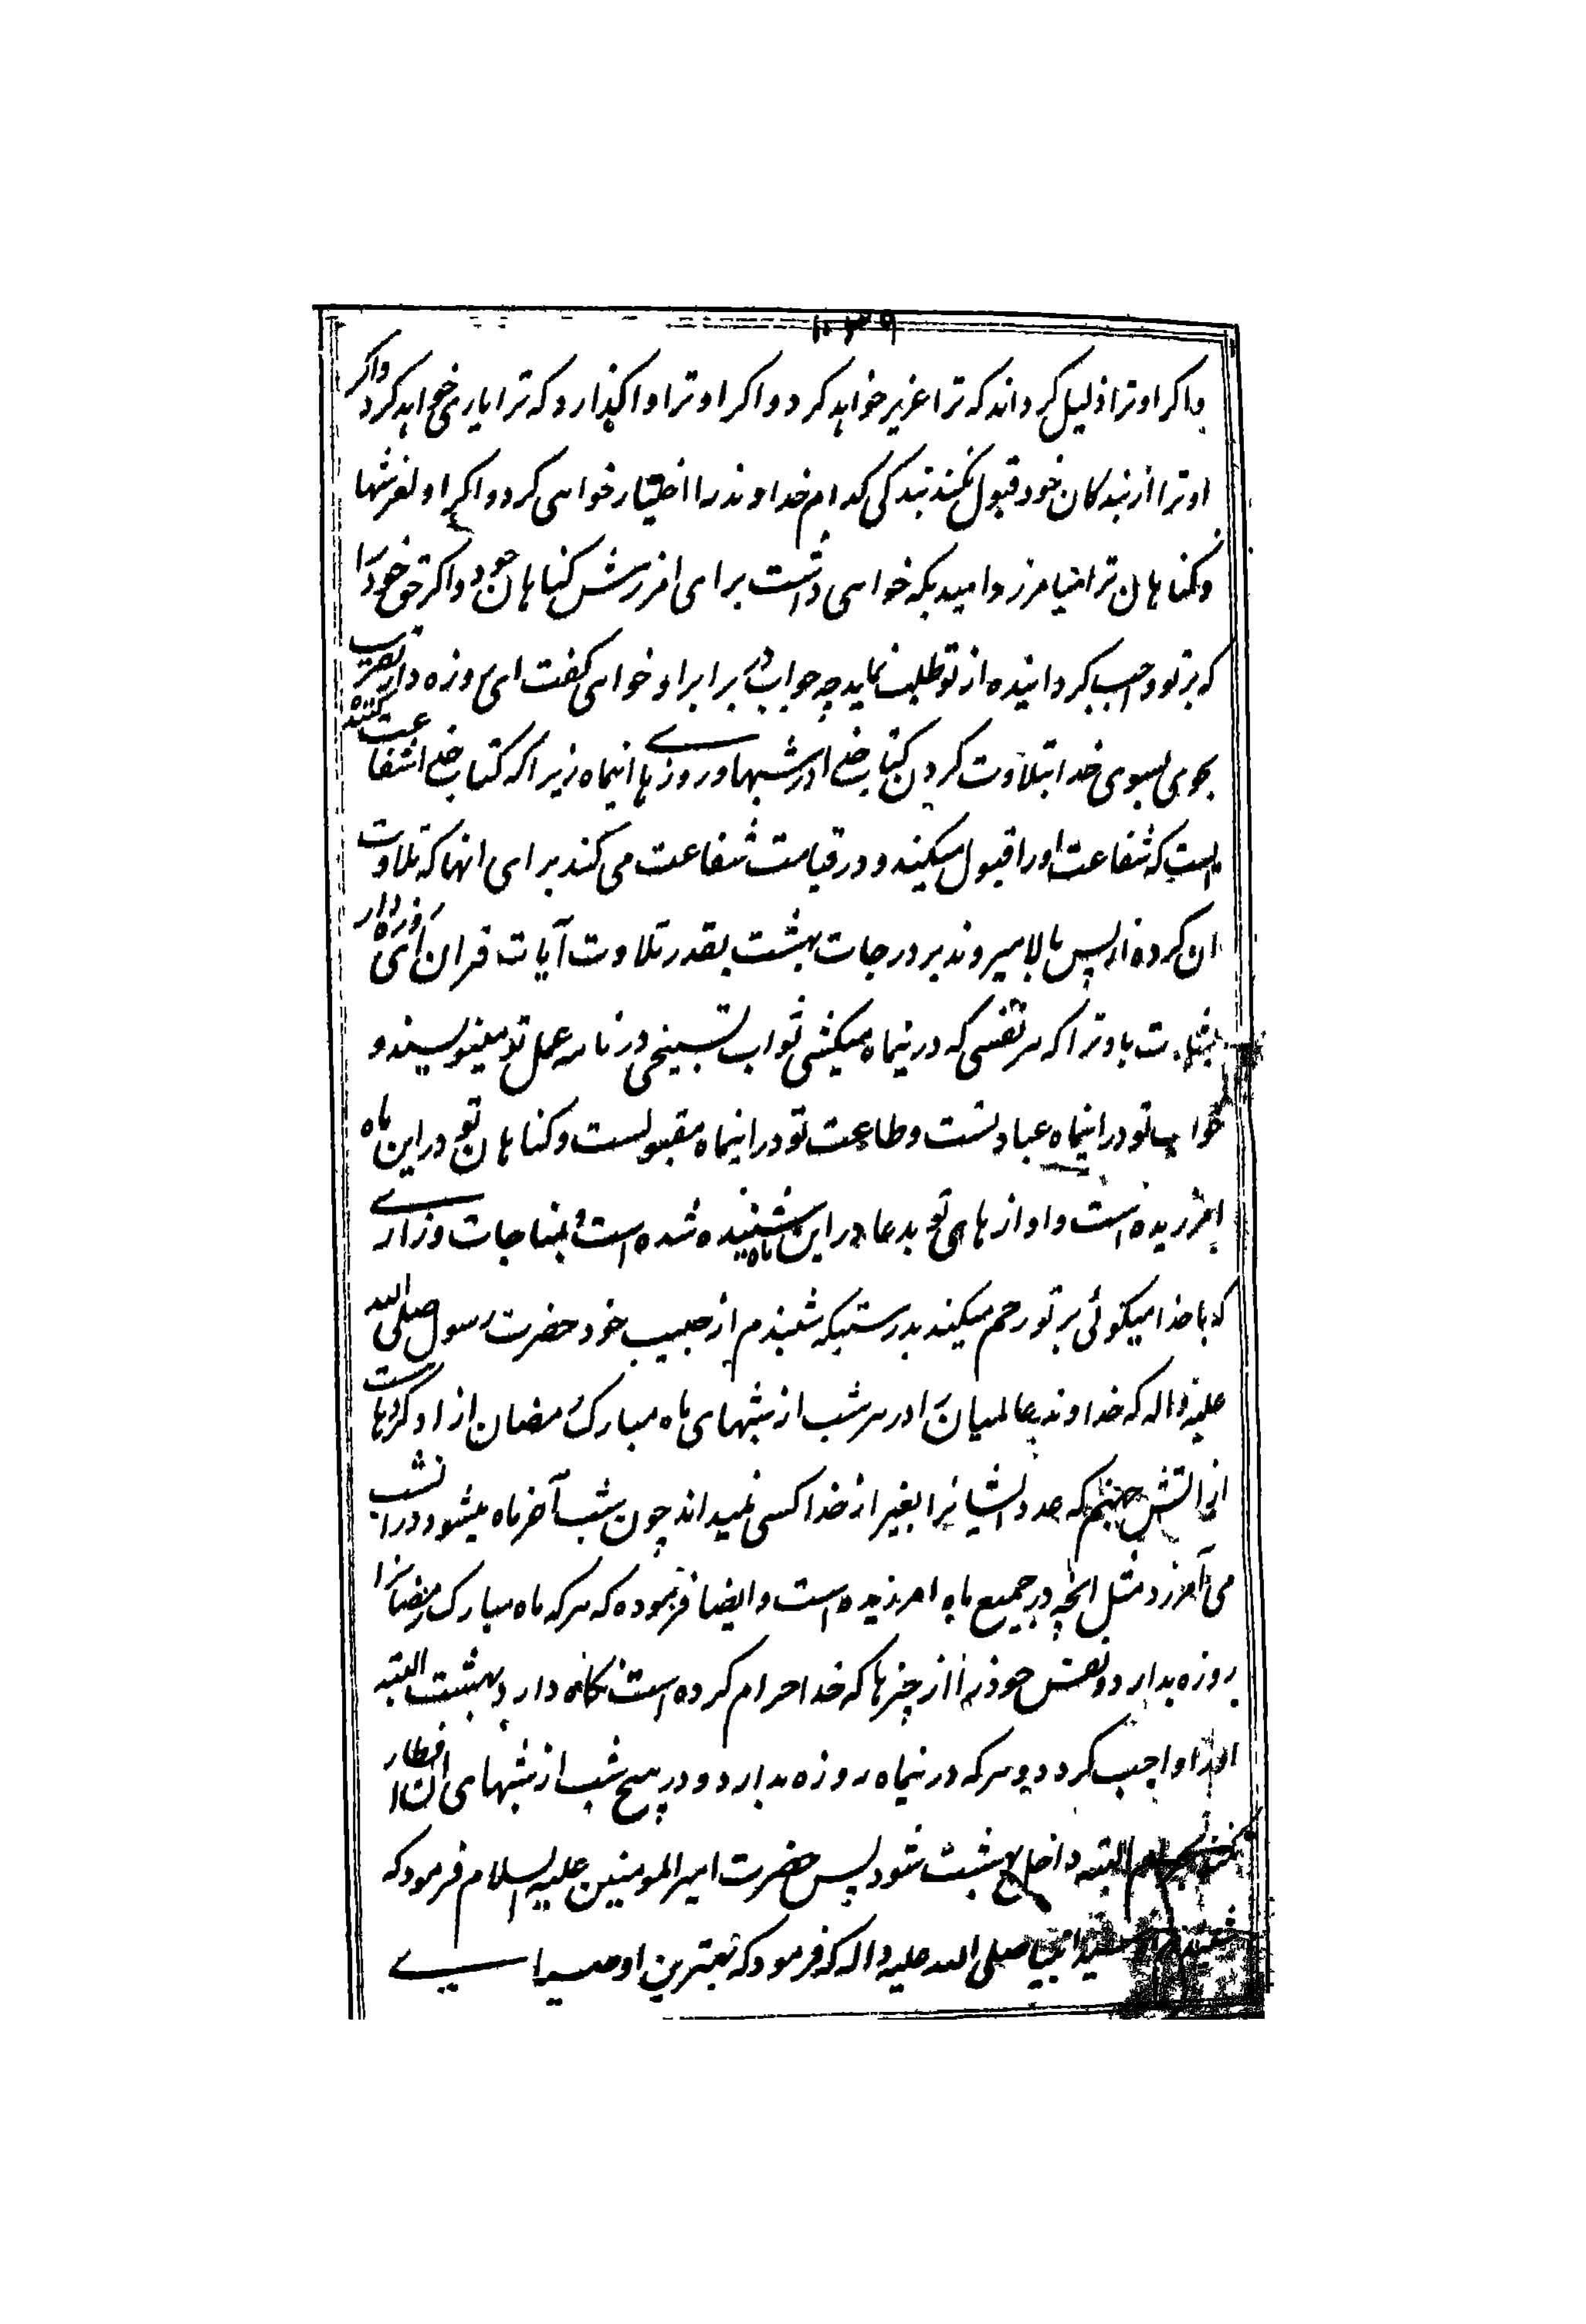 ۱۰۳۹
واکر او ترا ذلیل کرداند که ترا عزیز خواهد کرد و اکر او ترا واکذارد که ترا یاری خواهد کرد واکر
او ترا از بندکان خود قبول نکند بندکی کدام خداوند را اختیار خواهی کرد و اکر او لغزشها
و کناهان ترا نیامرزد امید بکه خواهی داشت برای امرزش کناهان خود و اکر حق خود را
که بر تو واجب کردانیده از تو طلب نماید چه جواب در برابر او خواهی کفت ای روزه دار تقرب
بجوی بسوی خدا بتلاوت کردن کتاب خدا در شبها و روزهای اینماه زیرا که کتاب خدا شفاعت کننده
است که شفاعت او را قبول میکنند و در قیامت شفاعت می کند برای انها که تلاوت
ان کرده اند پس بالا میروند بر درجات بهشت بقدر تلاوت آیات قران ای روزه دار
بشارت باد ترا که هر نفسی که در اینماه میکشی ثواب تسبیحی در نامه عمل تو مینویسند و
خواب تو در اینماه عبادتست و طاعت تو در اینماه مقبولست و کناهان تو در این ماه
امرزیده است و اوازهای تو بدعا در این ماه شنیده شده است و بمناجات و زاری
که با خدا میکوئی بر تو رحم میکند بدرستیکه شنیدم از حبیب خود حضرت رسول صلی الله
علیه و اله که خداوند عالمیان را در هر شب از شبهای ماه مبارک رمضان ازاد کردها است
از اتش جهنم که عدد ایشانرا بغیر از خدا کسی نمیداند چون شب آخر ماه میشود در انشب
می آمرزد مثل انچه در جمیع ماه امرزیده است و ایضا فرموده که هر که ماه مبارک رمضانرا
روزه بدارد و نفس خود را از چیزها که خدا حرام کرده است نکاه دارد بهشت البته
او را واجب کردد و هر که در اینماه روزه بدارد و در هیچ شب از شبهای ان افطار
البته داخل بهشت شود پس حضرت امیر المومنین علیه السلام فرمود که
شنیدم از سید انبیا صلی الله علیه و اله که فرمود که بهترین اوصیاے